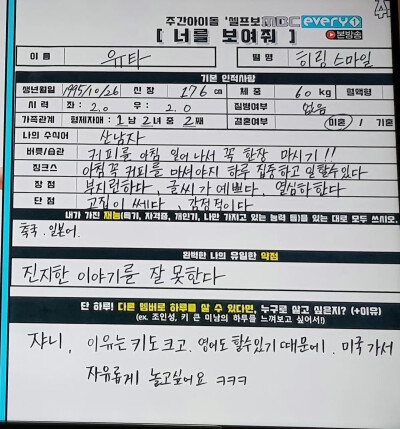 주간아이돌 '셀프보 MBC every1
[ 너를 보여줘 ] 본방송
이름 유타 별명 힐링스마일
기본 인적사항
생년월일 1995/10/26 신장 176cm 체중 60kg 혈액형
시력 좌: 2.0 우: 2.0 질병여부 없음
가족관계 형제자매: 1남 2녀 중 2째 결혼여부 미혼 / 기혼
나의 수식어 산남자
버릇/습관 커피를 아침 일어나서 꼭 한잔 마시기!!
징크스 아침 꼭 커피를 마셔야지 하루 집중하고 일할수있다
장점 부지런하다, 글씨가 예쁘다, 열심히한다
단점 고집이 쎄다, 감정적이다
내가 가진 재능(특기, 자격증, 개인기, 나만 가지고 있는 능력 등)을 있는 대로 모두 쓰시오.
축국. 일본어.
완벽한 나의 유일한 약점
진지한 이야기를 잘 못한다
단 하루! 다른 멤버로 하루를 살 수 있다면, 누구로 살고 싶은지? (+이유)
(ex. 조인성, 키 큰 미남의 하루를 느껴보고 싶어서!)
쟈니, 이유는 키도 크고. 영어도 할수있기 때문에. 미국 가서
자유롭게 놀고싶어요 ㅋㅋㅋ